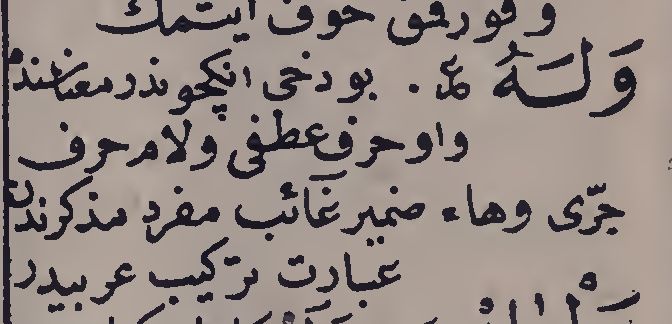 وقورقق خوف ايتمك
وَلَهُ عم . بودخى انكچوندر معناسنه
واو حرف عطفى ولام حرف
جرّى وهاء ضمير غائب مفرد مذكردن
عبارت تركيب عربيدر